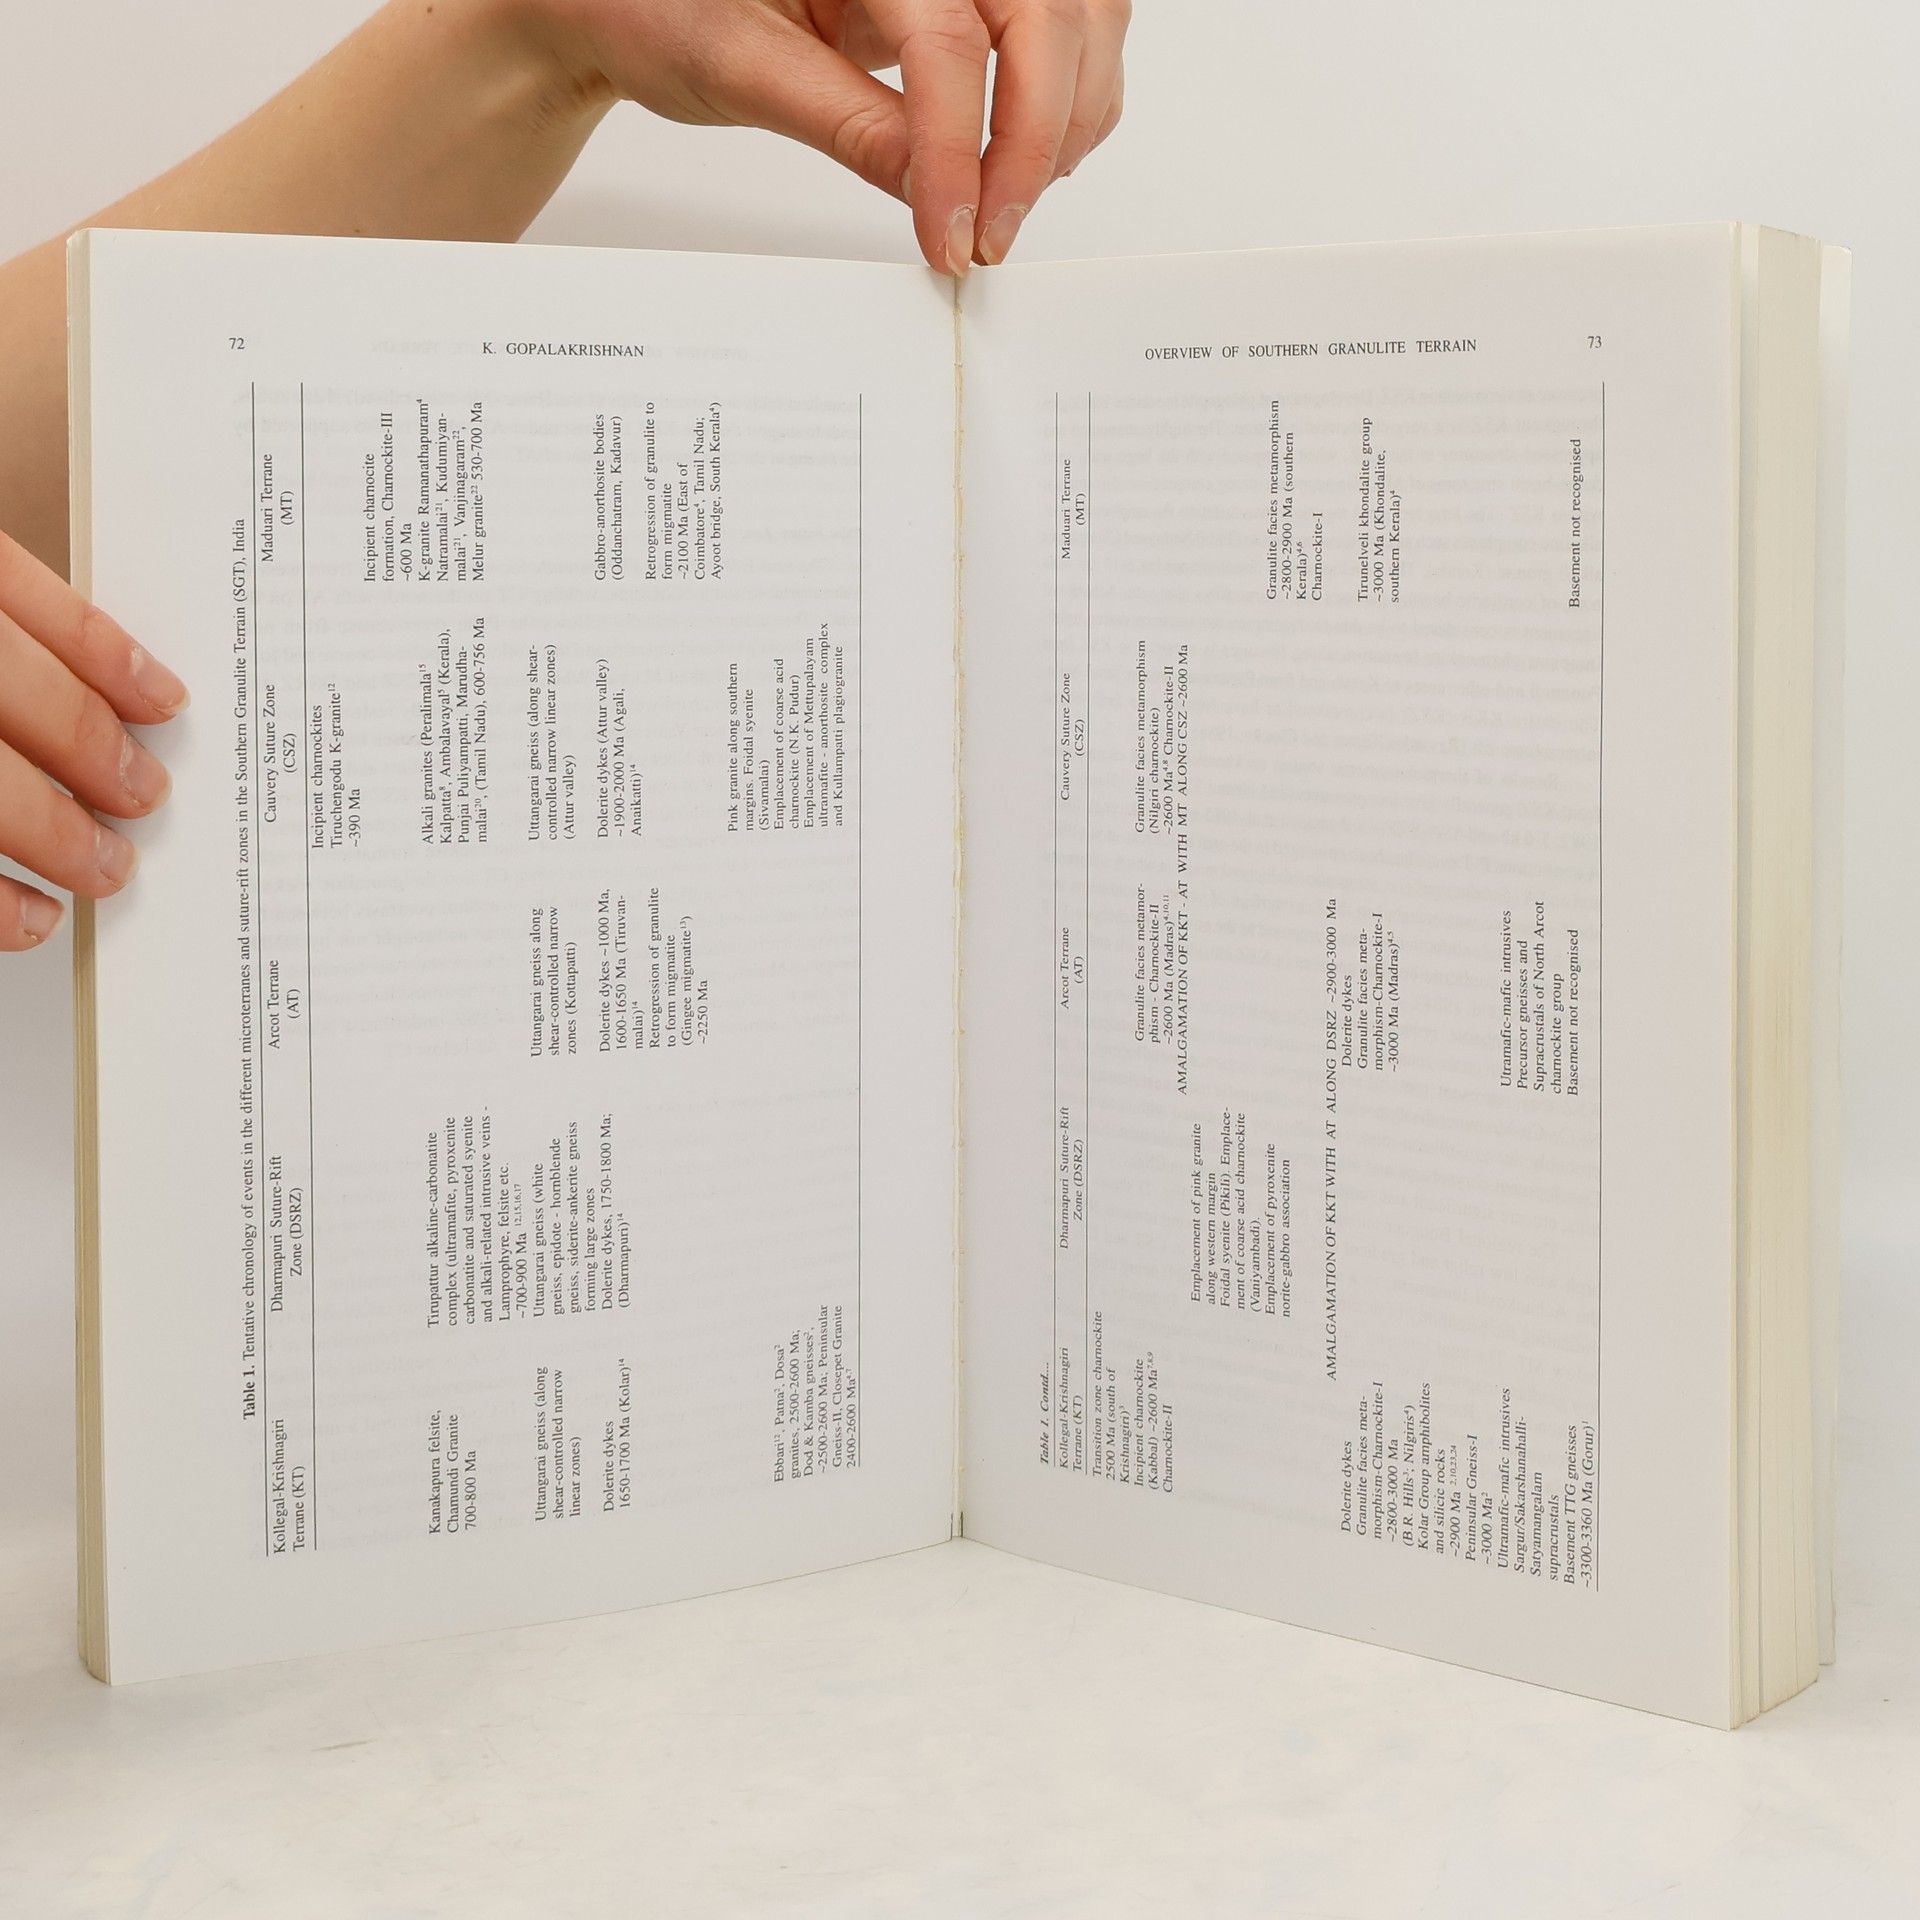 72
K. GOPALAKRISHNAN
Table 1. Tentative chronology of events in the different microterranes and suture-rift zones in the Southern Granulite Terrain (SGT), India
Kollegal-Krishnagiri
Terrane (KT)
Dharmapuri Suture-Rift
Zone (DSRZ)
Arcot Terrane
(AT)
Cauvery Suture Zone
(CSZ)
Maduari Terrane
(MT)
Incipient charnockites
Tiruchengodu K-granite¹²
~390 Ma
Incipient charnocite
formation, Charnockite-III
~600 Ma
Kanakapura felsite,
Chamundi Granite
700-800 Ma
Tirupattur alkaline-carbonatite
complex (ultramafite, pyroxenite
carbonatite and saturated syenite
and alkali-related intrusive veins -
Lamprophyre, felsite etc.
~700-900 Ma ¹²,¹⁵,¹⁶,¹⁷
Alkali granites (Peralimala¹⁵
Kalpatta⁸, Ambalavayal⁵ (Kerala),
Punjai Puliyampatti, Marudha-
malai²⁰, (Tamil Nadu), 600-756 Ma
K-granite Ramanathapuram⁴
Natramalai²¹, Kudumiyan-
malai²¹, Vanjinagaram²²,
Melur granite²² 530-700 Ma
Uttangarai gneiss (along
shear-controlled narrow
linear zones)
Uttangarai gneiss (white
gneiss, epidote - hornblende
gneiss, siderite-ankerite gneiss
forming large zones
Uttangarai gneiss along
shear-controlled narrow
zones (Kottapatti)
Uttangarai gneiss (along shear-
controlled narrow linear zones)
(Attur valley)
Dolerite dykes
1650-1700 Ma (Kolar)¹⁴
Dolerite dykes, 1750-1800 Ma;
(Dharmapuri)¹⁴
Dolerite dykes ~1000 Ma,
1600-1650 Ma (Tiruvan-
malai)¹⁴
Retrogression of granulite
to form migmatite
(Gingee migmatite¹³)
~2250 Ma
Dolerite dykes (Attur valley)
~1900-2000 Ma (Agali,
Anaikatti)¹⁴
Gabbro-anorthosite bodies
(Oddanchatram, Kadavur)
Retrogression of granulite to
form migmatite
~2100 Ma (East of
Coimbatore⁴, Tamil Nadu;
Ayoot bridge, South Kerala⁴)
Pink granite along southern
margins. Foidal syenite
(Sivamalai)
Emplacement of coarse acid
charnockite (N.K. Pudur)
Emplacement of Mettupalayam
ultramafite - anorthosite complex
and Kullampatti plagiogranite
Ebbari¹², Patna², Dosa²
granites, 2500-2600 Ma;
Dod & Kamba gneisses²,
~2500-2600 Ma; Peninsular
Gneiss-II, Closepet Granite
2400-2600 Ma⁶,⁷
OVERVIEW OF SOUTHERN GRANULITE TERRAIN
73
Table 1. Contd....
Kollegal-Krishnagiri
Terrane (KT)
Dharmapuri Suture-Rift
Zone (DSRZ)
Arcot Terrane
(AT)
Cauvery Suture Zone
(CSZ)
Maduari Terrane
(MT)
Transition zone charnockite
2500 Ma (south of
Krishnagiri)³
Incipient charnockite
(Kabbal) ~2600 Ma⁷,⁸,⁹
Charnockite-II
Granulite facies metamor-
phism - Charnockite-II
~2600 Ma (Madras)⁴,¹⁰,¹¹
Granulite facies metamorphism
(Nilgiri charnockite)
~2600 Ma⁴,⁸ Charnockite-II
AMALGAMATION OF KKT - AT WITH MT ALONG CSZ ~2600 Ma
Emplacement of pink granite
along western margin
Foidal syenite (Pikili). Emplace-
ment of coarse acid charnockite
(Vaniyambadi).
Emplacement of pyroxenite
norite-gabbro association
Granulite facies metamorphism
~2800-2900 Ma (southern
Kerala)⁴,⁶
Charnockite-I
AMALGAMATION OF KKT WITH AT ALONG DSRZ ~2900-3000 Ma
Dolerite dykes
Granulite facies meta-
morphism-Charnockite-I
~2800-3000 Ma
(B.R. Hills²,³; Nilgiris⁴)
Kolar Group amphibolites
and silicic rocks
~2900 Ma ²,¹⁰,²³,²⁴
Peninsular Gneiss-I
~3000 Ma²
Ultramafic-mafic intrusives
Sargur/Sakarshanahalli-
Satyamangalam
supracrustals
Basement TTG gneisses
~3300-3360 Ma (Gorur)¹
Dolerite dykes
Granulite facies meta-
morphism-Charnockite-I
~3000 Ma (Madras)⁴,⁵
Utramafic-mafic intrusives
Precursor gneisses and
Supracrustals of North Arcot
charnockite group
Basement not recognised
Tirunelveli khondalite group
~3000 Ma (Khondalite,
southern Kerala)⁴
Basement not recognised